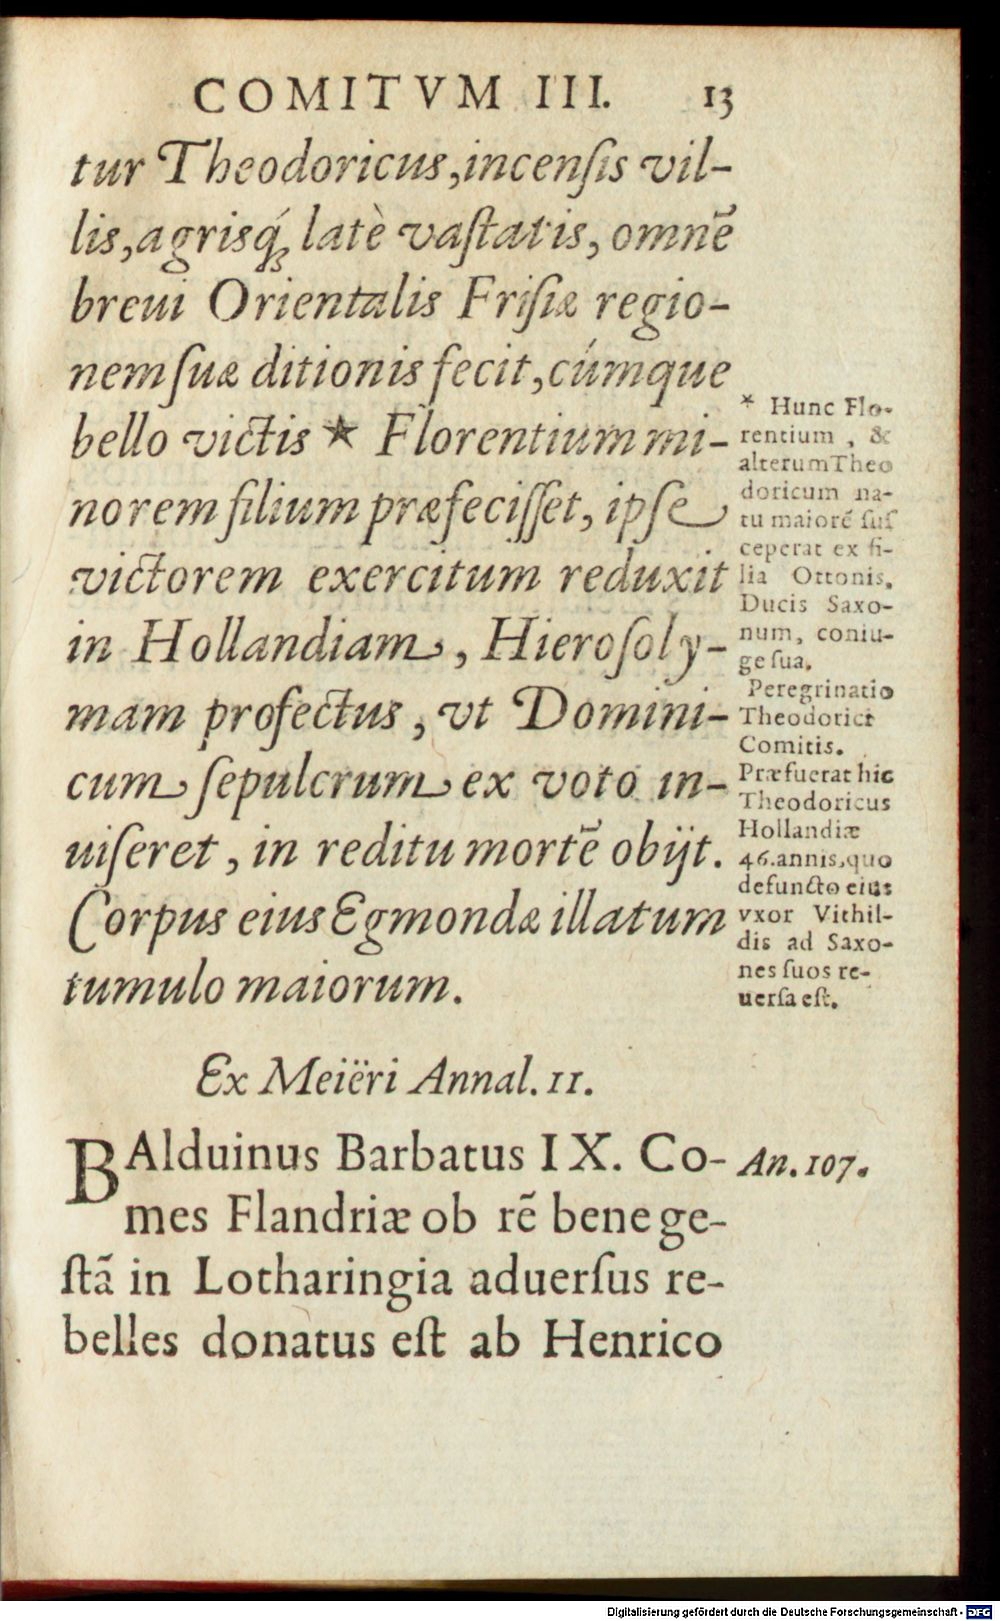 COMITVM III. 13
tur Theodoricus, incensis vil-
lis, agrisq́; latè vastatis, omnẽ
breui Orientalis Frisiæ regio-
nem suæ ditionis fecit, cúmque
bello victis * Florentium mi-
norem filium præfecisset, ipse
victorem exercitum reduxit
in Hollandiam, Hierosoly-
mam profectus, vt Domini-
cum sepulcrum ex voto in-
uiseret, in reditu mortẽ obijt.
Corpus eius Egmondæ illatum
tumulo maiorum.
* Hunc Flo-
rentium, &
alterum Theo
doricum na-
tu maiorẽ sus
ceperat ex fi-
lia Ottonis,
Ducis Saxo-
num, coniu-
ge sua.
Peregrinatio
Theodorici
Comitis.
Præfuerat hic
Theodoricus
Hollandiæ
46. annis, quo
defuncto eius
vxor Vithil-
dis ad Saxo-
nes suos re-
uersa est.
Ex Meiëri Annal. 11.
BAlduinus Barbatus IX. Co-
mes Flandriæ ob rẽ bene ge-
stã in Lotharingia aduersus re-
belles donatus est ab Henrico
An. 107.
Digitalisierung gefördert durch die Deutsche Forschungsgemeinschaft - DFG